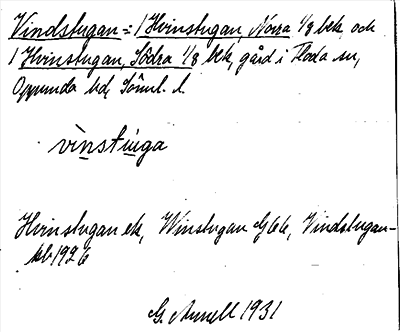 Vindstugan = 1 Hvinstugan, Norra 1/8 bek och
1 Hvinstugan, Södra 1/8 bek, gård i Floda sn,
Oppunda hd, Söml. l.
vìnstu̇ga
Hvinstugan ek, Winstugan Gbk, Vindstugan-
sb 1926
G. Annell 1931